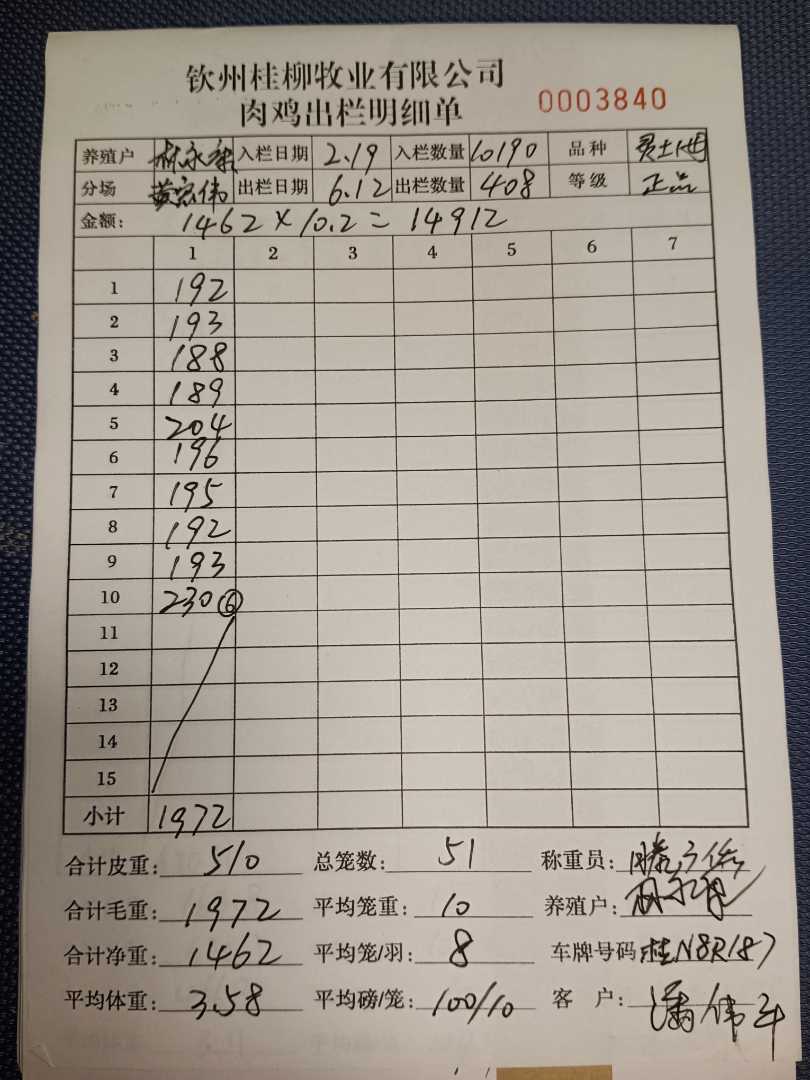 钦州桂柳牧业有限公司
肉鸡出栏明细单 0003840
养殖户 林永 入栏日期 2.19 入栏数量 10190 品种
分场 黄宗伟 出栏日期 6.12 出栏数量 408 等级 正品
金额: 1462×10.2=14912
1 2 3 4 5 6 7
1 192
2 193
3 188
4 189
5 204
6 196
7 195
8 192
9 193
10 230⑥
11
12
13
14
15
小计 1972
合计皮重: 510 总笼数: 51 称重员:
合计毛重: 1972 平均笼重: 10 养殖户:
合计净重: 1462 平均笼/羽: 8 车牌号码: 桂N8R187
平均体重: 3.58 平均磅/笼: 100/10 客 户: 潘伟